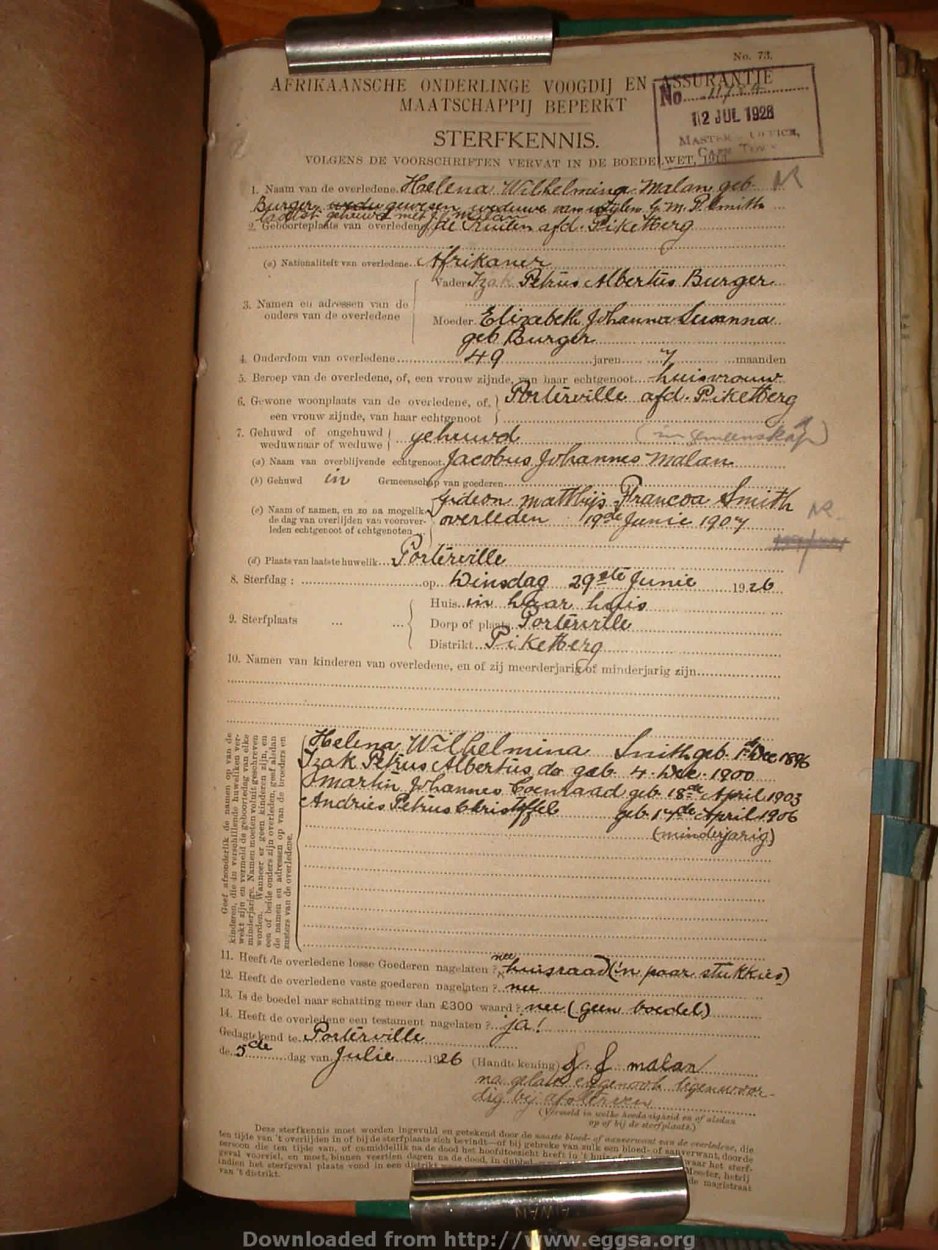 No. 73.
AFRIKAANSCHE ONDERLINGE VOOGDIJ EN ASSURANTIE
MAATSCHAPPIJ BEPERKT
No
12 JUL 1926
STERFKENNIS.
VOLGENS DE VOORSCHRIFTEN VERVAT IN DE BOEDELWET,
1. Naam van de overledene Helena Wilhelmina Malan geb
Burger gewesen weduwe van wylen G. M. P. Smith
laatst gehuwd met J. J. Malan
2. Geboorteplaats van overledene de Kruiden afd. Piketberg
(a) Nationaliteit van overledene Afrikaner
3. Namen en adressen van de ouders van de overledene
Vader Izak Petrus Albertus Burger
Moeder Elizabeth Johanna Susanna
geb Burger
4. Ouderdom van overledene 49 jaren 7 maanden
5. Beroep van de overledene, of, een vrouw zijnde, van haar echtgenoot huisvrouw
6. Gewone woonplaats van de overledene, of, een vrouw zijnde, van haar echtgenoot Porterville afd. Piketberg
7. Gehuwd of ongehuwd weduwnaar of weduwe gehuwd (in gemeenskap)
(a) Naam van overblijvende echtgenoot Jacobus Johannes Malan
(b) Gehuwd in Gemeenschap van goederen
(c) Naam of namen, en zo na mogelik de dag van overlijden van vooroverleden echtgenoot of echtgenoten
Gideon Matthijs Francoa Smith
overleden 19de Junie 1907
(d) Plaats van laatste huwelik Porterville
8. Sterfdag : op Dinsdag 29ste Junie 1926
9. Sterfplaats
Huis in haar huis
Dorp of plaats Porterville
Distrikt Piketberg
10. Namen van kinderen van overledene, en of zij meerderjarig of minderjarig zijn
Geef afzonderlik de namen op van de
kinderen, die in verschillende huweliken verwekt zijn en vermeld de geboortedag van elke
minderjarige. Namen moeten voluit geschreven
worden. Wanneer er geen kinderen zijn, en
een of beide ouders zijn overleden, geef alsdan
de namen en adressen op van de broeders en
zusters van de overledene.
Helena Wilhelmina Smith geb 1st Dec 1896
Izak Petrus Albertus do geb 4 Dec. 1900
Martin Johannes Coenraad geb 18de April 1903
Andries Petrus Christoffel geb 17de April 1906
(minderjarig)
11. Heeft de overledene losse Goederen nagelaten ? nee huisraad (in paar stukkies)
12. Heeft de overledene vaste goederen nagelaten ? nee
13. Is de boedel naar schatting meer dan £300 waard ? nee (geen boedel)
14. Heeft de overledene een testament nagelaten ? ja!
Gedagtekend te Porterville
de 5de dag van Julie 1926 (Handtekening) J. J. Malan
na gelate eggenoot tegenwoordig by afsterwen
(Vermeld in welke hoedanigheid en of alsdan
op of bij de sterfplaats.)
Deze sterfkennis moet worden ingevuld en getekend door de naaste bloed- of aanverwant van de overledene, die
ten tijde van 't overlijden in of bij de sterfplaats zich bevindt—of bij gebreke van zulk een bloed- of aanverwant, door de
persoon die ten tijde van, of onmiddellik na de dood het hoofdtoezicht heeft in 't huis waar het sterfgeval
voorviel, en moet, binnen veertien dagen na de dood, in dubbel Meester, hetzij
indien het sterfgeval plaats vond in een distrikt de magistraat
van 't distrikt.
Downloaded from http://www.eggsa.org